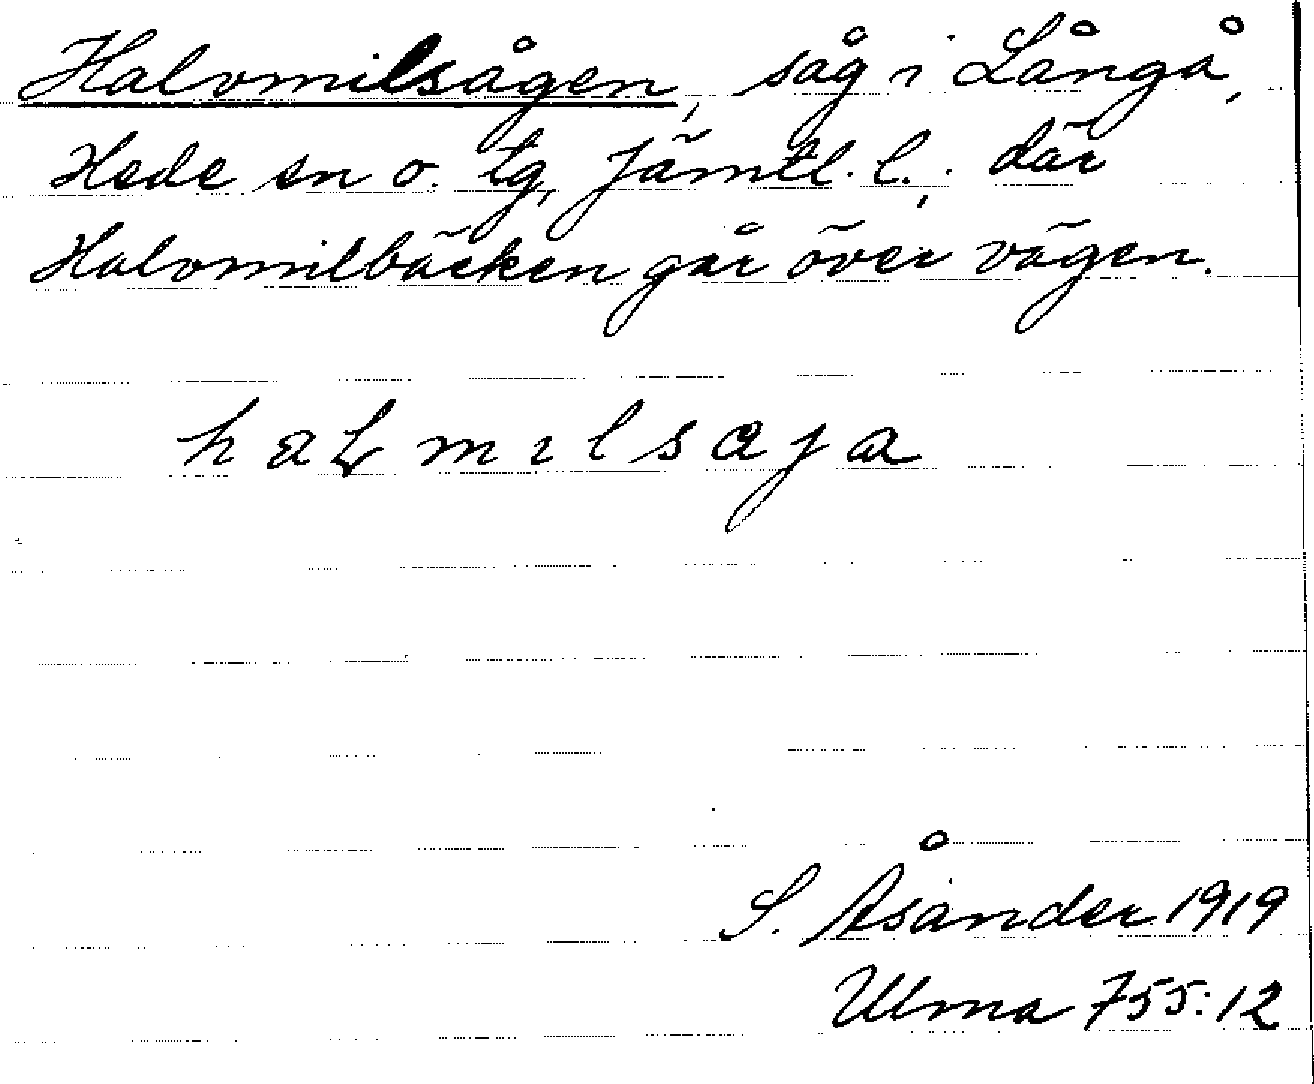 Halvmilsågen, såg i Långå,
Hede sn o. tg, Jämtl. l., där
Halvmilbäcken går över vägen.
S. Åsander 1919
Ulma 755:12